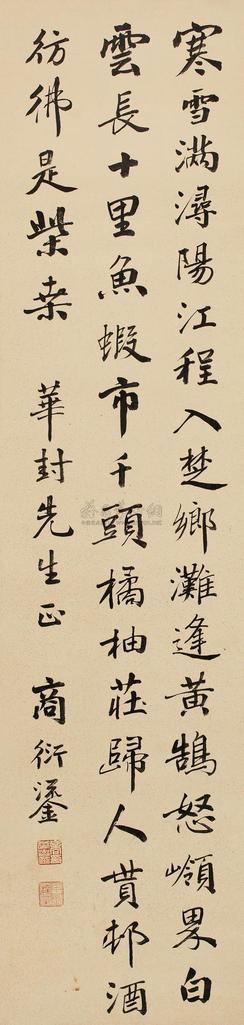 寒雪滿潯陽江程入楚鄉灘逢黃鵠怒嶺界白
雲長十里魚蝦市千頭橘柚莊歸人貰邨酒
彷彿是柴桒 華封先生正 商衍鎏